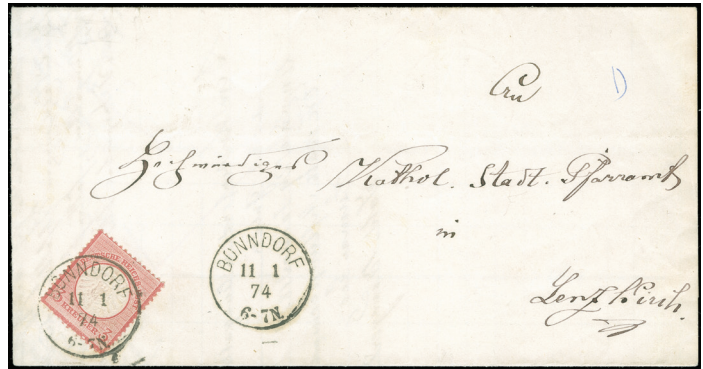 An
Hochwürdiges Kathol. Stadt. Pfarramt
in
Lenzkirch.
BONNDORF
11 1
74
6-7N.
BONNDORF
11 1
74
6-7N.